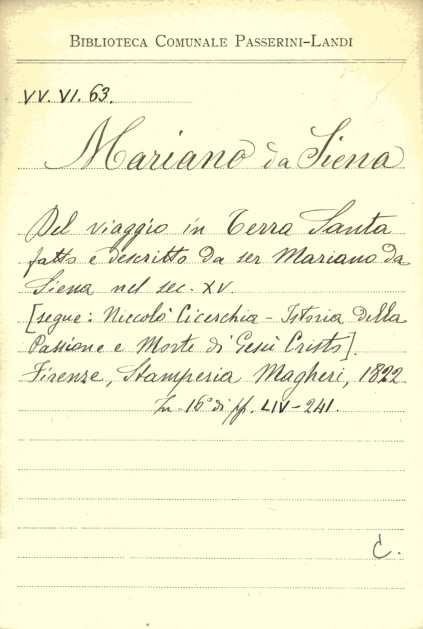 BIBLIOTECA COMUNALE PASSERINI-LANDI
VV. VI. 63.
Mariano da Siena
Del viaggio in Terra Santa
fatto e descritto da ser Mariano da
Siena nel sec. XV.
[segue: Niccolò Cicerchia - Istoria della
Passione e Morte di Gesù Cristo].
Firenze, Stamperia Magheri, 1822.
In 16° di pp. LIV-241.
C.